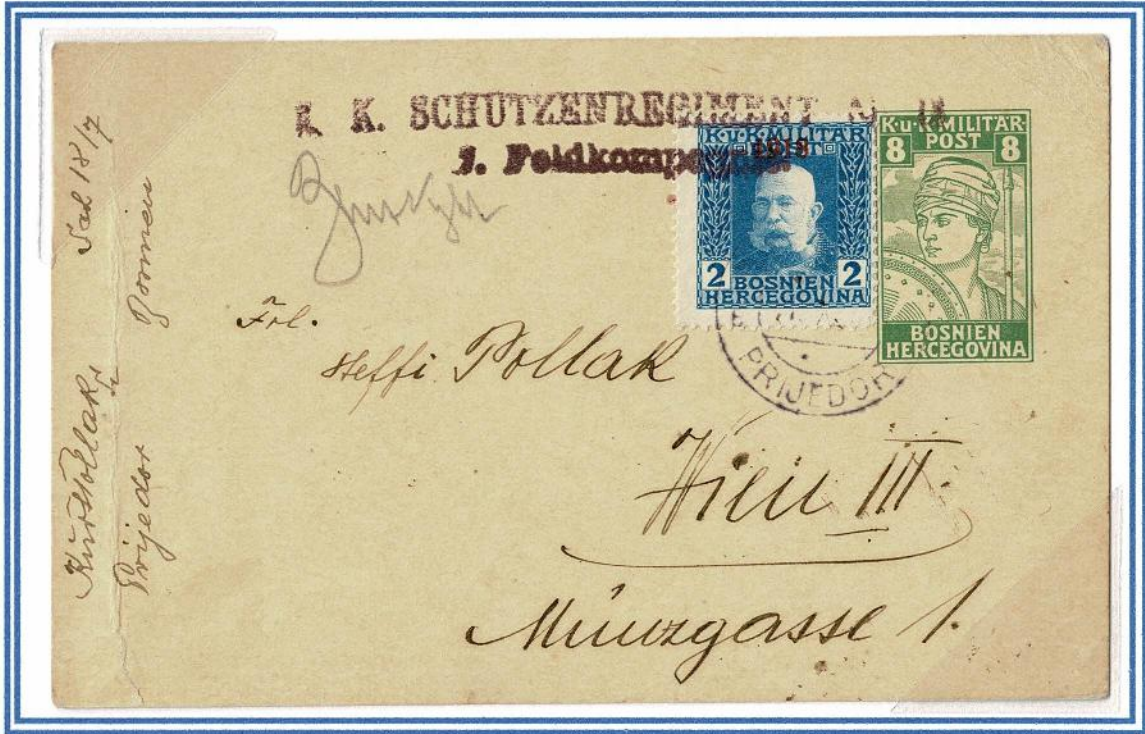 K. K. SCHÜTZENREGIMENT
Feldkompagnie
K.u.K. MILITÄR
POST
1918
2 2
BOSNIEN
HERCEGOVINA
K.u.K. MILITÄR
8 POST 8
BOSNIEN
HERCEGOVINA
PRIJEDOR
Frl.
Steffi Pollak
Wien III.
Münzgasse 1.
Pollak
18/7
Prijedor Bosnien